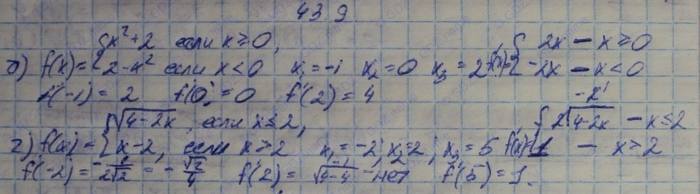 439
{x²+2 если x≥0,
б) f(x)={2-x² если x<0 x₁=-1 x₂=0 x₃=2 f'(x)={2x - x≥0
-2x - x<0
f'(-1)=2 f'(0)=0 f'(2)=4
{√4-2x, если x≤2,
г) f(x)={x-2, если x>2 x₁=-2; x₂=2; x₃=5 f'(x)={-2/2√4-2x - x≤2
1 - x>2
f'(-2)=-1/2√2=-√2/4 f'(2)=√4-4-нет f'(5)=1.